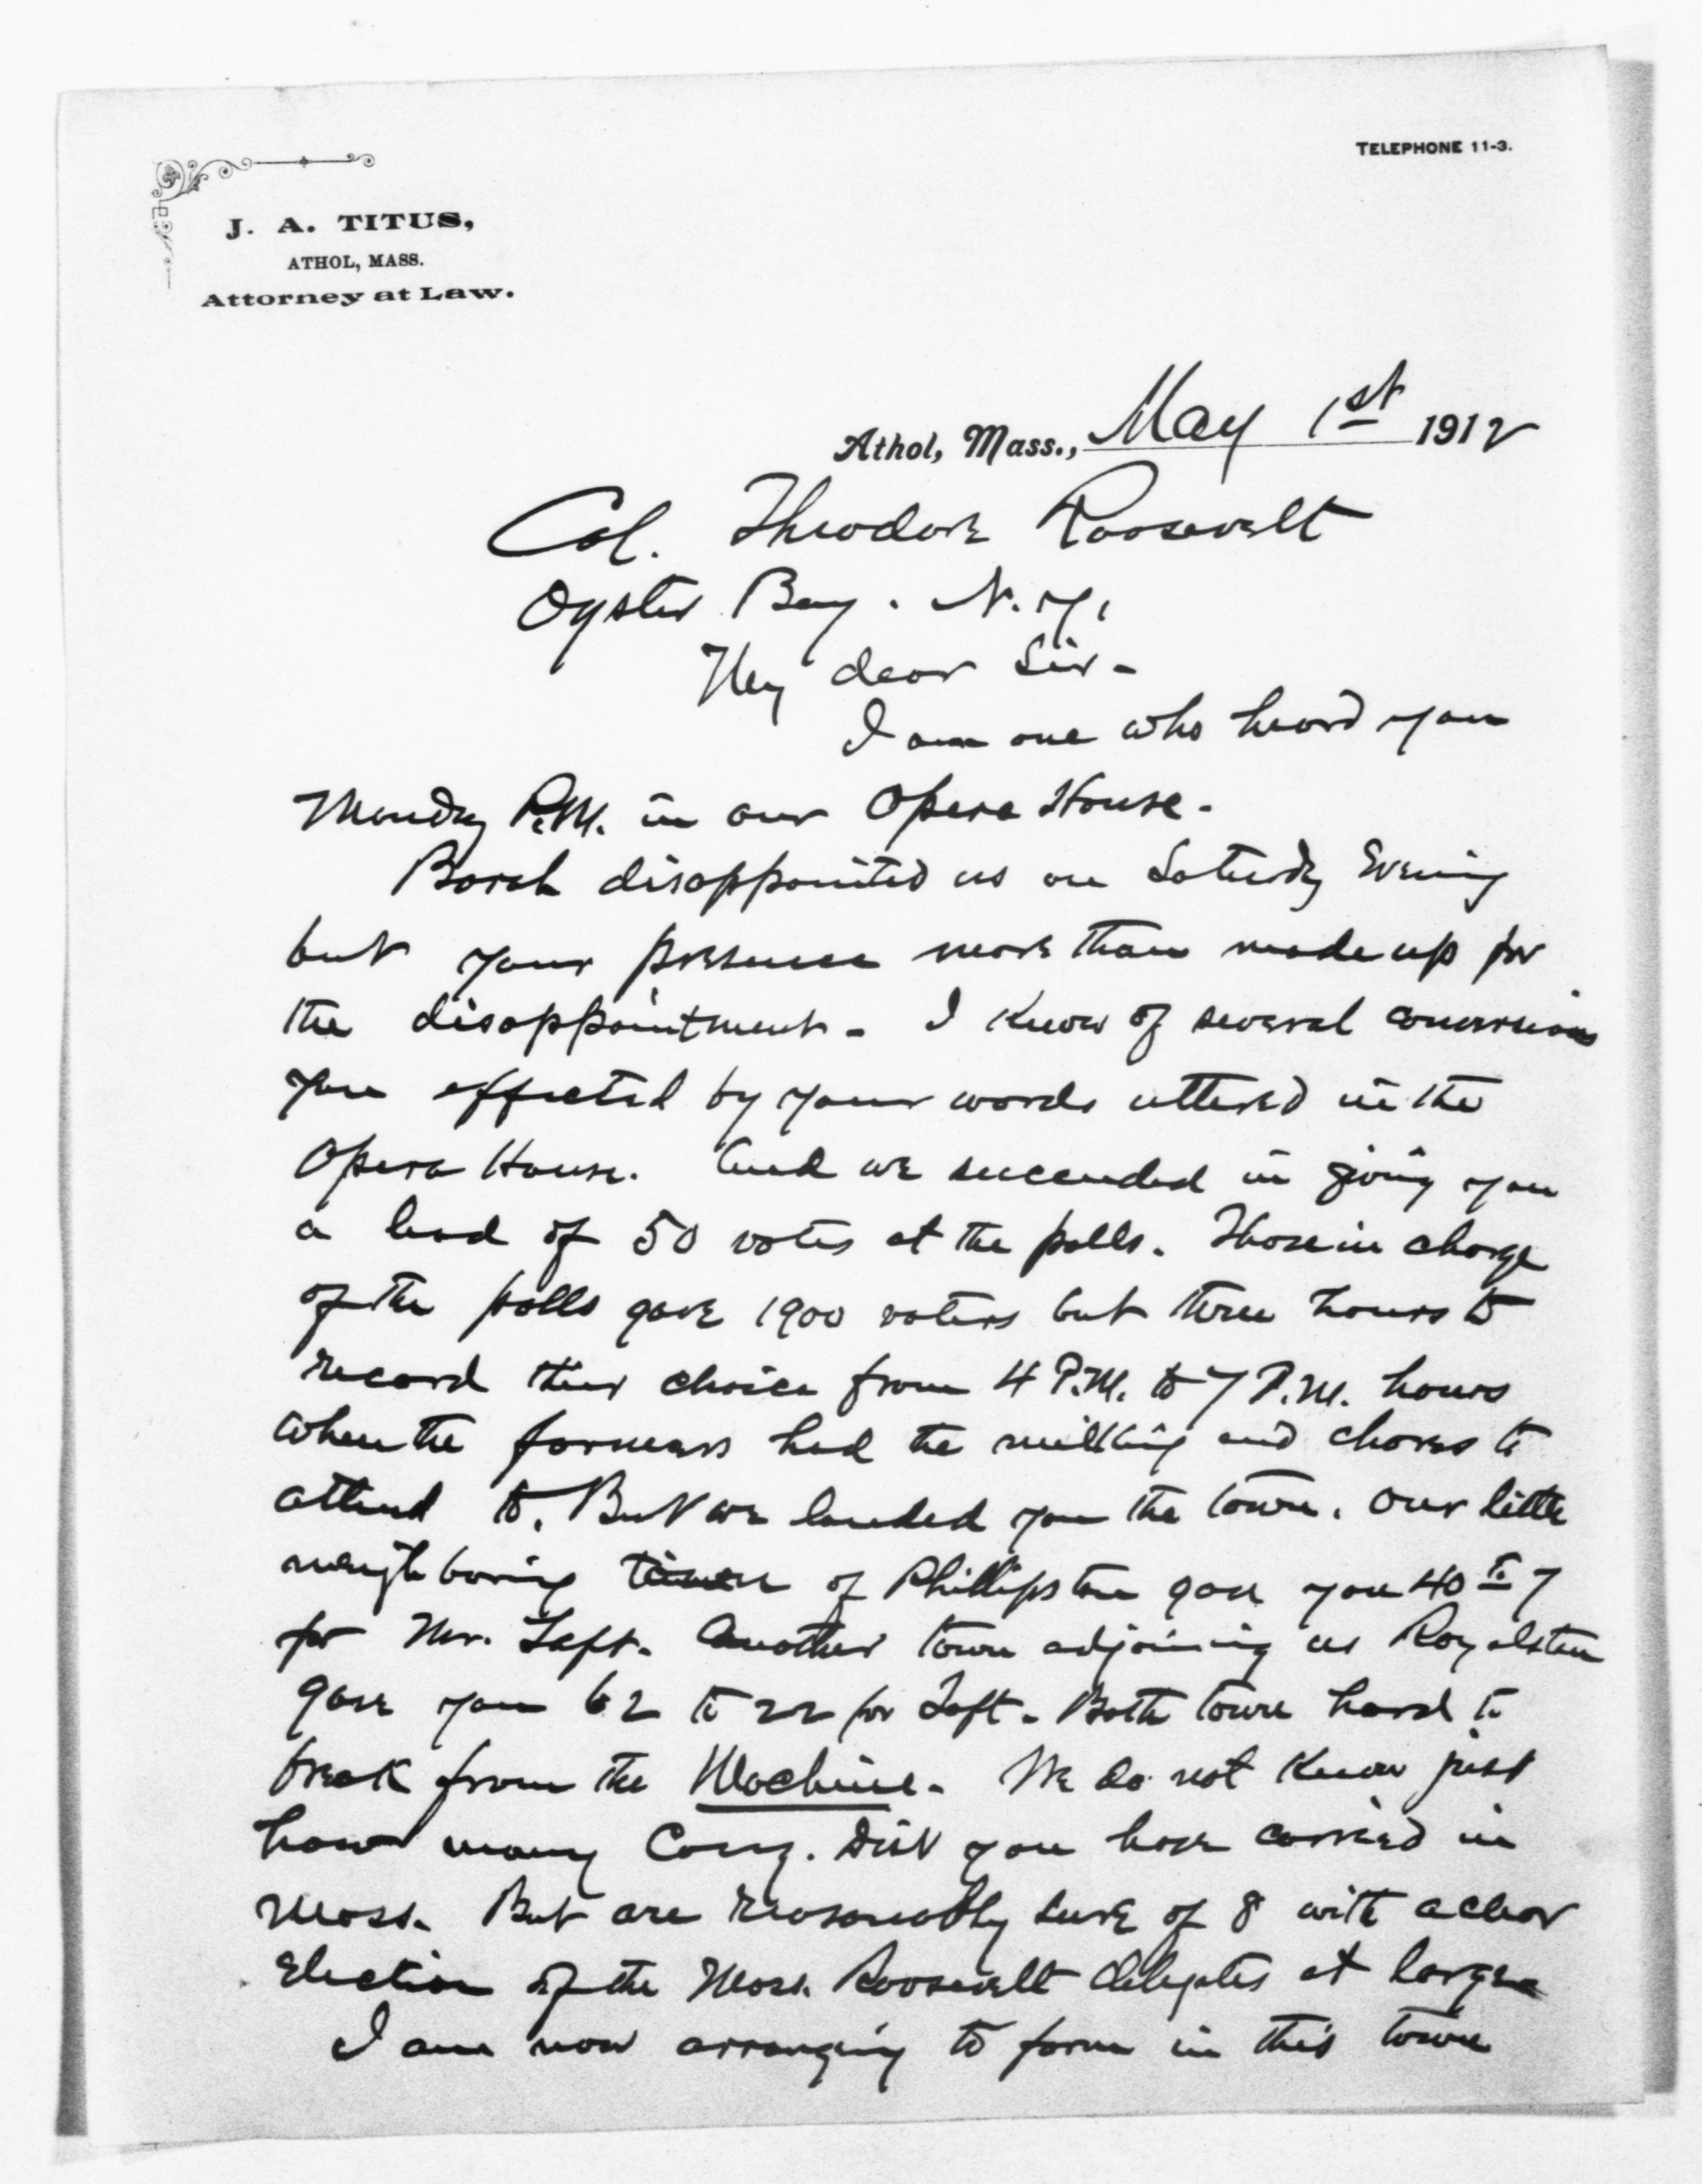 TELEPHONE 11-3.
J. A. TITUS,
ATHOL, MASS.
Attorney at Law.
Athol, Mass., May 1st 1912
Col. Theodore Roosevelt
Oyster Bay. N.Y.
My dear Sir-
I am one who heard you
Monday P.M. in our Opera House.
Borah disappointed us on Saturday Evening
but your presence more than made up for
the disappointment - I know of several conversions
you effected by your words uttered in the
Opera House. And we succeeded in giving you
a lead of 50 votes at the polls. Those in charge
of the polls gave 1900 voters but three hours to
record their choice from 4 P.M. to 7 P.M. hours
when the farmers had the milking and chores to
attend to. But we landed you the town. Our little
neighboring town of Phillipston gave you 40 to 7
for Mr. Taft. Another town adjoining us Royalston
gave you 62 to 22 for Taft. Both town hard to
break from the Machine. We do not know just
how many Cong. Dist you have carried in
Mass. But are reasonably sure of 8 with a clear
election of the Mass. Roosevelt delegates at large
I am now arranging to form in this town